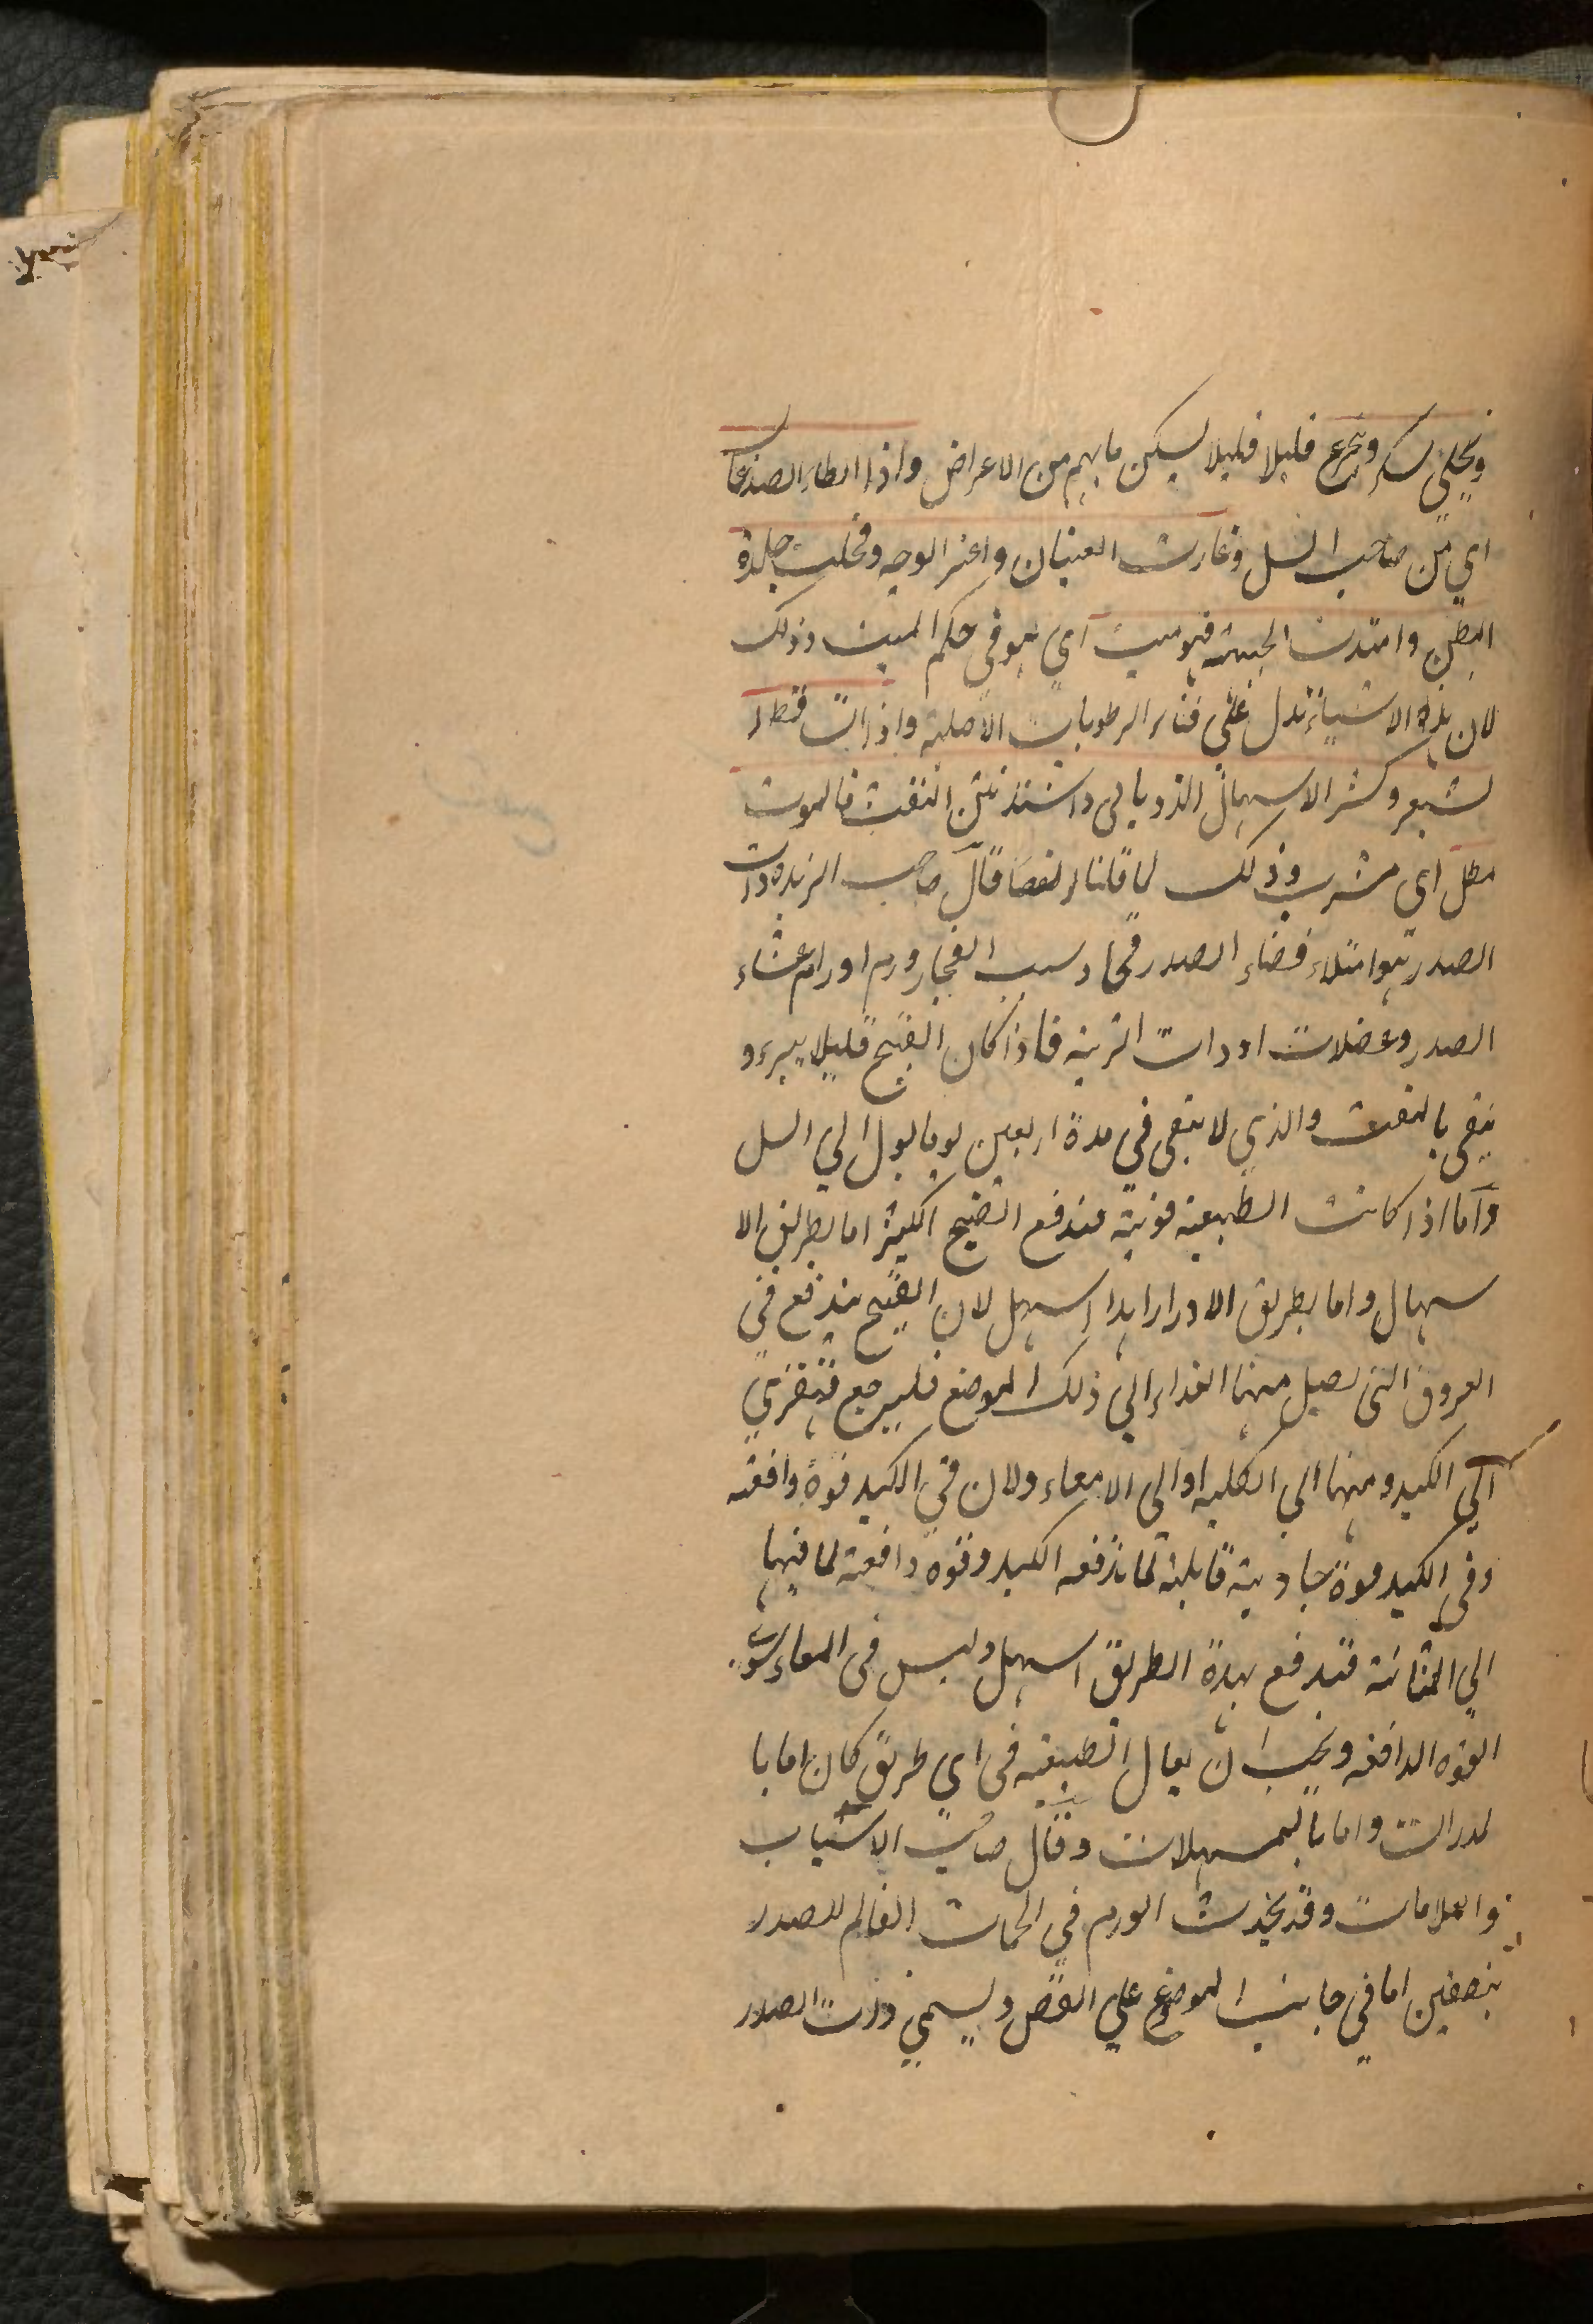 ويحلى بسكر ويجرع قليلا قليلا ليسكن ما بهم من الاعراض واذا لطأ الصدغا
اي من صاحب السل وغارت العينان واغبر الوجه وقحلت جلدة
البطن وامتدت الجبهة فهو ميت اي هو في حكم الميت وذلك
لان هذه الاشياء تدل على فناء الرطوبات الاصلية واذا تساقط ا
لشعر وكثر الاسهال الذوباني واشتد نتن النفث فالموت
مطل اي مشرب وذلك لما قلنا ايضا قال صاحب الزبدة ذات
الصدر هو امتلاء فضاء الصدر قيحا وسببه انفجار ورم اورام غشاء
الصدر وعضلات او ذات الرية فاذا كان القيح قليلا يبرء و
ينقى بالنفث والذي لا ينقى في مدة اربعين يوما يول الي السل
واما اذا كانت الطبيعة قوية فيندفع القيح الكثير اما بطريق الا
سهال واما بطريق الادرار ابدا اسهل لان القيح يندفع في
العروق التي يصل منها الغذاء الي ذلك الموضع فليرجع قهقري
الي الكبد ومنها الي الكلية او الي الامعاء ولان في الكبد قوة دافعة
وفى الكبد قوة جاذبة قابلة لما تدفعه الكبد وقوة دافعة لما فيها
الي المثانة فتدفع بهذه الطريق اسهل وليس فى المعاء سوى
القوة الدافعة ويجب ان يعال الطبيعة فى اي طريق كان اما با
لمدرات واما بالمسهلات وقال صاحب الاسباب
والعلامات وقد يحدث الورم في الحجاب القاسم للصدر
بنصفين اما في جانب الموضع علي القص ويسمي ذات الصدر